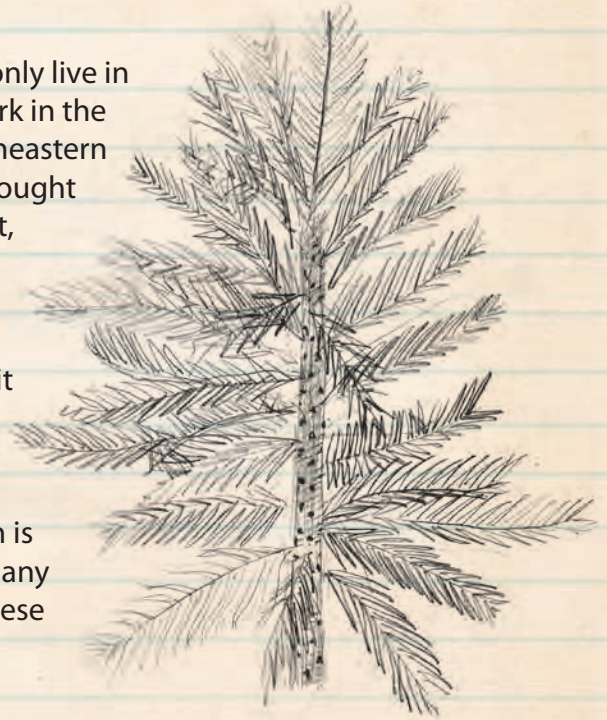 only live in
rk in the
heastern
ought
t,
it
n is
any
ese